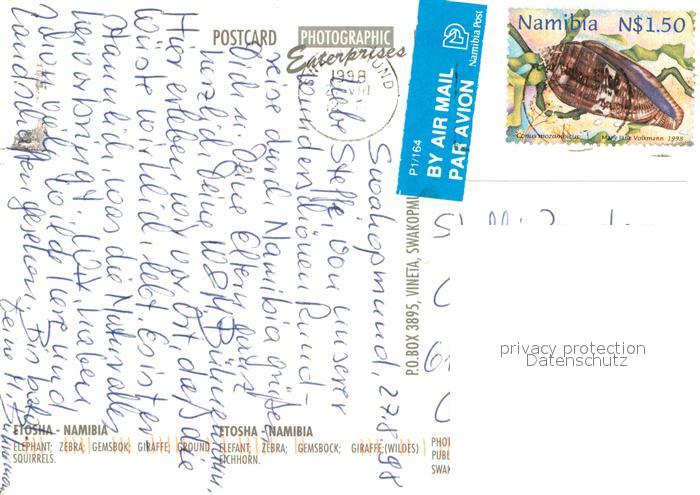 POSTCARD
PHOTOGRAPHIC
Enterprises
1998
BY AIR MAIL
PAR AVION
P1/164
Namibia Post
Namibia N$1.50
Conus mozambicus
Mary Jane Volkmann 1998
P.O.BOX 3895, VINETA, SWAKOPMU
Swakopmund, 27.8.98
Liebe Steffi, von unserer
wunderschönen Rund-
reise durch Namibia grüße
Dich + Deine Eltern ganz
herzlich Deine
Hier erleben wir vor Ort, daß die
Wüste wirklich lebt. Es ist er-
staunlich, was die Natur alles
hervorbringt. Wir haben
schon viele wilde Tiere und
Landschaften gesehen. Bis bald
Deine
privacy protection
Datenschutz
ETOSHA - NAMIBIA
ELEPHANT; ZEBRA; GEMSBOK; GIRAFFE; GROUND
SQUIRRELS.
ETOSHA - NAMIBIA
ELEFANT; ZEBRA; GEMSBOCK; GIRAFFE;(WILDES)
EICHHORN.
PHOT
PUBL
SWAK